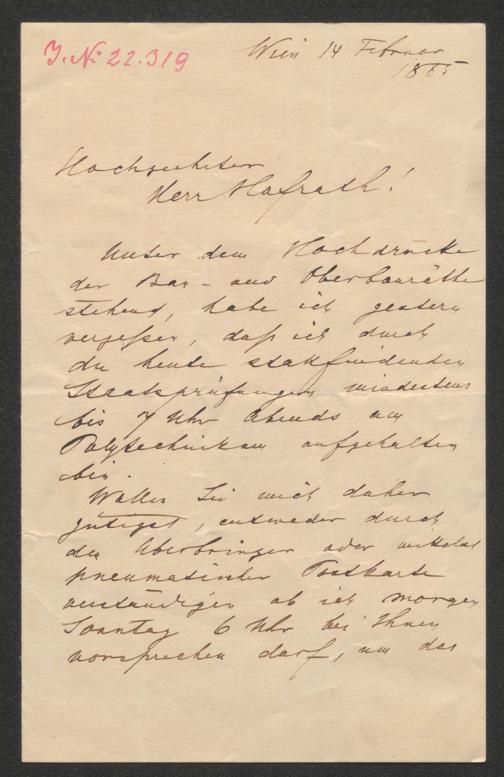 J. No 22.319
Wien 14 Februar
1885
Hochgeehrter
Herr Hofrath!
Unter dem Hochdrucke
der Bau- und Oberbauräthe
stehend, habe ich gestern
vergessen, daß ich durch
die heute stattfindenden
Staatsprüfungen mindestens
bis 7 Uhr Abends am
Polytechnikum aufgehalten
bin.
Wollen Sie mich daher
gütigst, entweder durch
den Überbringer oder mittelst
pneumatischer Postkarte
verständigen ob ich morgen
Sonntag 6 Uhr bei Ihnen
vorsprechen darf, um das